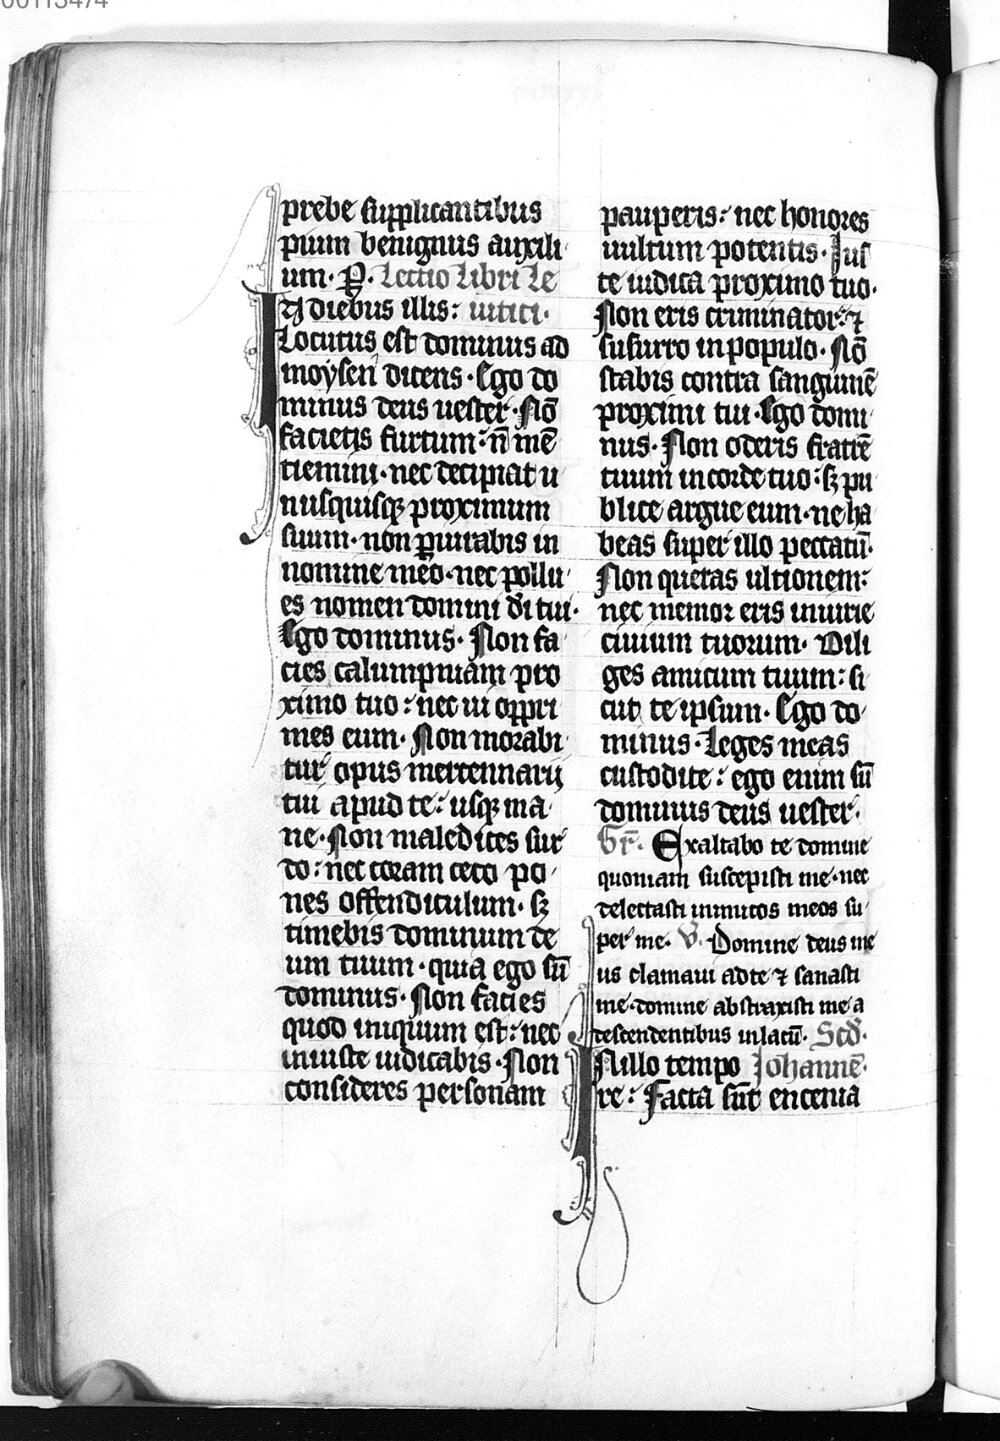 00113474
prebe supplicantibus
pium benignus auxili
um. P. Lectio libri le
In diebus illis: uitici.
Locutus est dominus ad
moysen dicens. Ego do
minus deus uester. Nō
facietis furtum: n̄ mē
tiemini. nec decipiat u
nusquisqꝫ proximum
suum. non ꝑiurabis in
nomine meo. nec pollu
es nomen domini dī tui.
Ego dominus. Non fa
cies calumpniam pro
ximo tuo: nec ui oppri
mes eum. Non morabi
tur opus mercennarij
tui apud te: usqꝫ ma
ne. Non maledices sur
do: nec coram ceco po
nes offendiculum. sꝫ
timebis dominum de
um tuum. quia ego sū
dominus. Non facies
quod iniquum est: nec
iniuste iudicabis. Non
consideres personam
pauperis: nec honores
uultum potentis. Jus
te iudica proximo tuo.
Non eris criminator: ⁊
susurro in populo. Nō
stabis contra sanguinē
proximi tui. Ego domi
nus. Non oderis fratrē
tuum in corde tuo: sꝫ pu
blice argue eum. ne ha
beas super illo peccatū.
Non queras ultionem:
nec memor eris iniurie
ciuium tuorum. Dili
ges amicum tuum: si
cut te ipsum. Ego do
minus. Leges meas
custodite: ego enim sū
dominus deus uester.
Gr̄. Exaltabo te domine
quoniam suscepisti me. nec
delectasti inimicos meos su
per me. V. Domine deus me
us clamaui ad te ⁊ sanasti
me. domine abstraxisti me a
descendentibus in lacū. Scd̄.
In illo tempo Johannē.
re: Facta sūt encenia